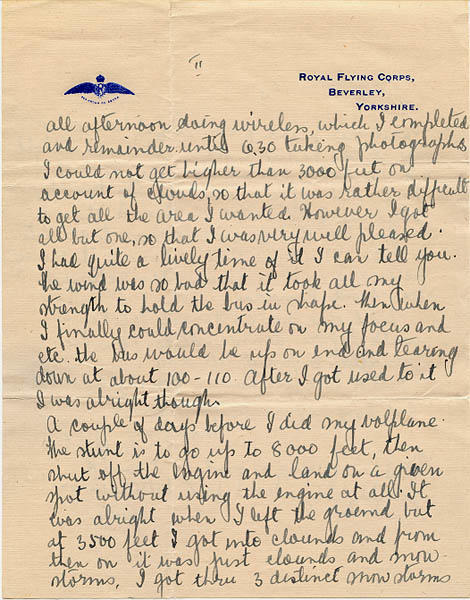 II
ROYAL FLYING CORPS,
BEVERLEY,
YORKSHIRE.
all afternoon doing wireless, which I completed
and remainder until 6.30 taking photographs
I could not get higher than 3000 feet on
account of clouds, so that it was rather difficult
to get all the area I wanted. However I got
all but one, so that I was very well pleased.
I had quite a lively time of it I can tell you.
The wind was so bad that it took all my
strength to hold the bus in shape. Then when
I finally could concentrate on my focus and
etc. the bus would be up on end and tearing
down at about 100-110. After I got used to it
I was alright though.
A couple of days before I did my volplane.
The stunt is to go up to 8000 feet, then
shut off the engine and land on a given
spot without using the engine at all. It
was alright when I left the ground but
at 3500 feet I got into clounds and from
then on it was just clounds and snow
storms. I got thru 3 distinct snow storms